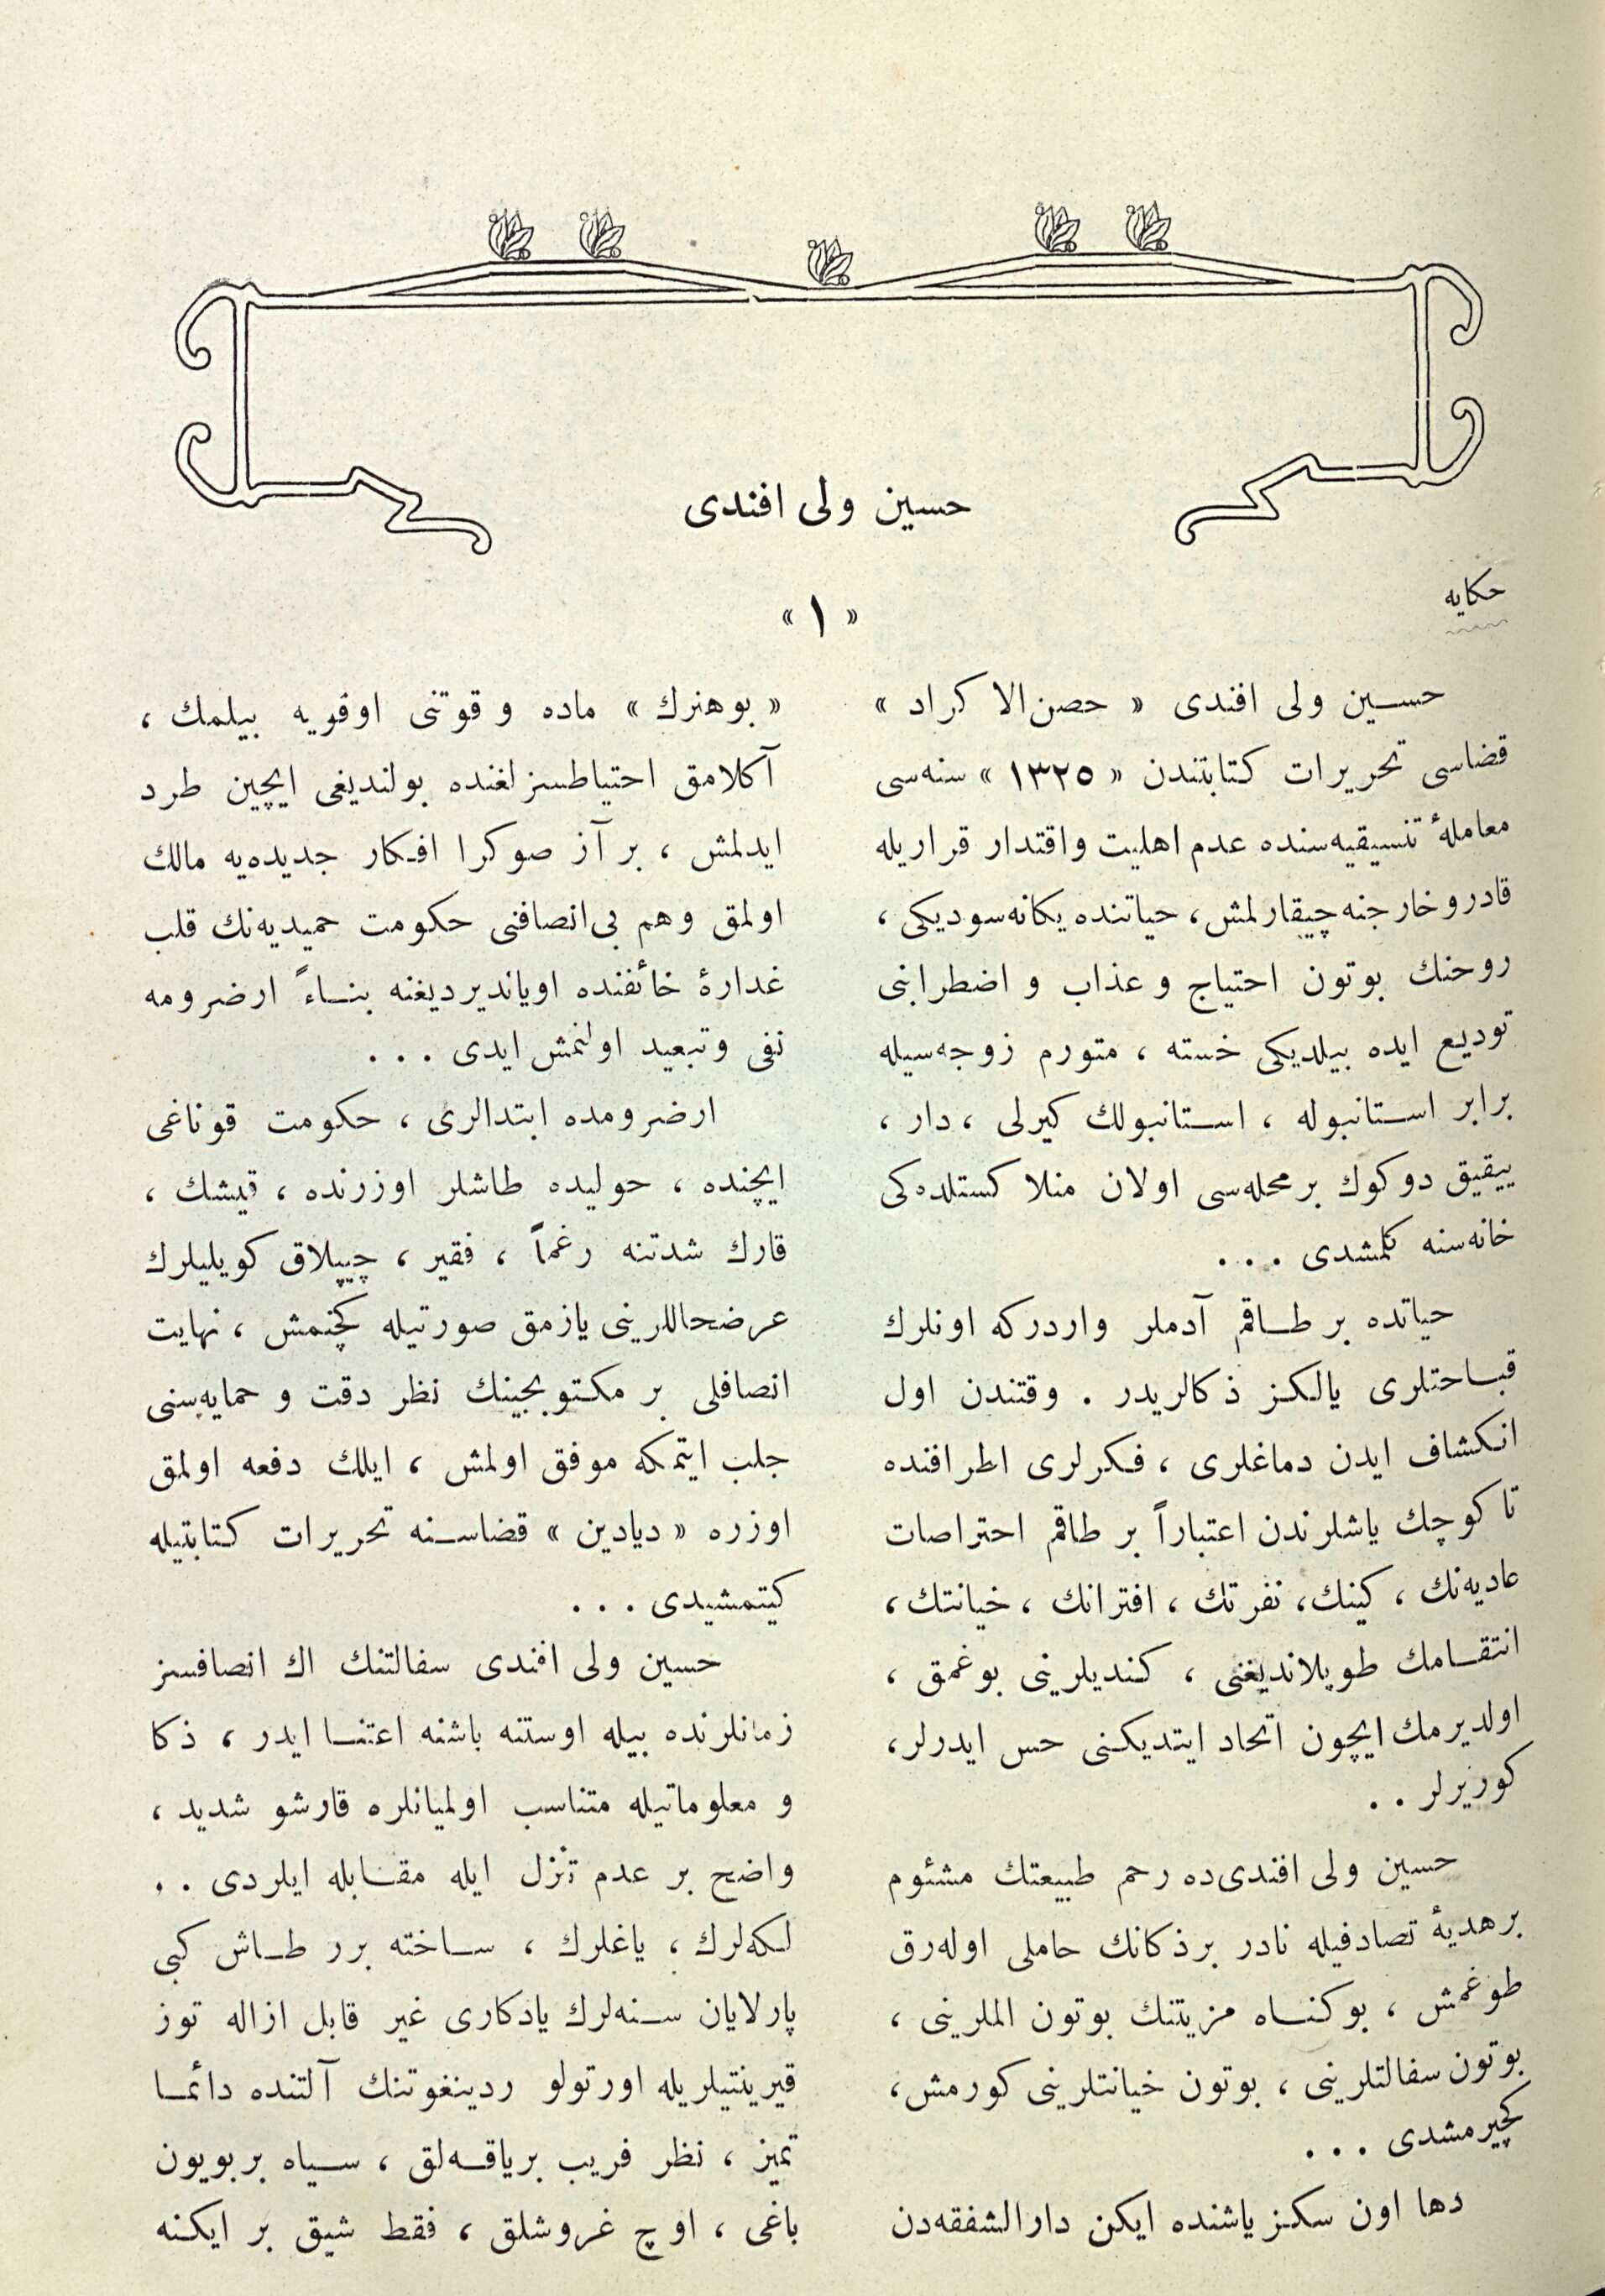 حسین ولی افندی
حكایه
« ۱ »
حسین ولی افندی « حصن‌الا كراد »
قضاسی تحریرات كتابتندن « ۱۳۲۵ » سنه‌سی
معاملهٔ تنسیقیه‌سنده عدم اهلیت واقتدار قراریله
قادروخارجنه چیقارلمش، حیاتنده یكانه‌سودیكی ،
روحنك بوتون احتیاج و عذاب و اضطرابنی
تودیع ایده بیلدیكی خسته ، متورم زوجه‌سیله
برابر استانبوله ، استانبولك كیرلی ، دار ،
ییقیق دوكوك بر محله‌سی اولان منلا كستلده‌كی
خانه‌سنه كلمشدی . . .
حیاتده بر طاقم آدملر واردركه اونلرك
قباحتلری یالكز ذكالریدر . وقتندن اول
انكشاف ایدن دماغلری ، فكرلری اطرافنده
تا كوچك یاشلرندن اعتباراً بر طاقم احتراصات
عادیه‌نك ، كینك، نفرتك ، افترانك ، خیانتك ،
انتقامك طوپلاندیغنی ، كندیلرینی بوغمق ،
اولدیرمك ایچون اتحاد ایتدیكنی حس ایدرلر،
كوریرلر . .
حسین ولی افندی‌ده رحم طبیعتك مشئوم
برهدیهٔ تصادفیله نادر برذكانك حاملی اوله‌رق
طوغمش ، بوكناه مزیتنك بوتون الملرینی ،
بوتون سفالتلرینی ، بوتون خیانتلرینی كورمش،
كچیرمشدی . . .
دها اون سكز یاشنده ایكن دارالشفقه‌دن
« بوهنرك » ماده و قوتنی اوقویه بیلمك ،
آكلامق احتیاطسزلغنده بولندیغی ایچین طرد
ایدلمش ، بر آز صوكرا افكار جدیده‌یه مالك
اولمق وهم بی‌انصافنی حكومت حمیدیه‌نك قلب
غدارهٔ خائفنده اویاندیردیغنه بناءً ارضرومه
نفی وتبعید اولنمش ایدی . . .
ارضرومده ابتدالری ، حكومت قوناغی
ایچنده ، حولیده طاشلر اوزرنده ، قیشك ،
قارك شدتنه رغماً ، فقیر ، چیپلاق كویلیلرك
عرضحاللرینی یازمق صورتیله كچنمش ، نهایت
انصافلی بر مكتوبجینك نظر دقت و حمایه‌سنی
جلب ایتمكه موفق اولمش ، ایلك دفعه اولمق
اوزره « دیادین » قضاسنه تحریرات كتابتیله
كیتمشیدی . . .
حسین ولی افندی سفالتنك اك انصافسز
زمانلرنده بیله اوستنه باشنه اعتنا ایدر ، ذكا
و معلوماتیله متناسب اولمیانلره قارشو شدید ،
واضح بر عدم تنزل ایله مقابله ایلردی . .
لكه‌لرك ، یاغلرك ، ساخته برر طاش كبی
پارلایان سنه‌لرك یادكاری غیر قابل ازاله توز
قیرینتیلریله اورتولو ردینغوتنك آلتنده دائما
تمیز ، نظر فریب بریاقه‌لق ، سیاه بربویون
باغی ، اوچ غروشلق ، فقط شیق بر ایكنه